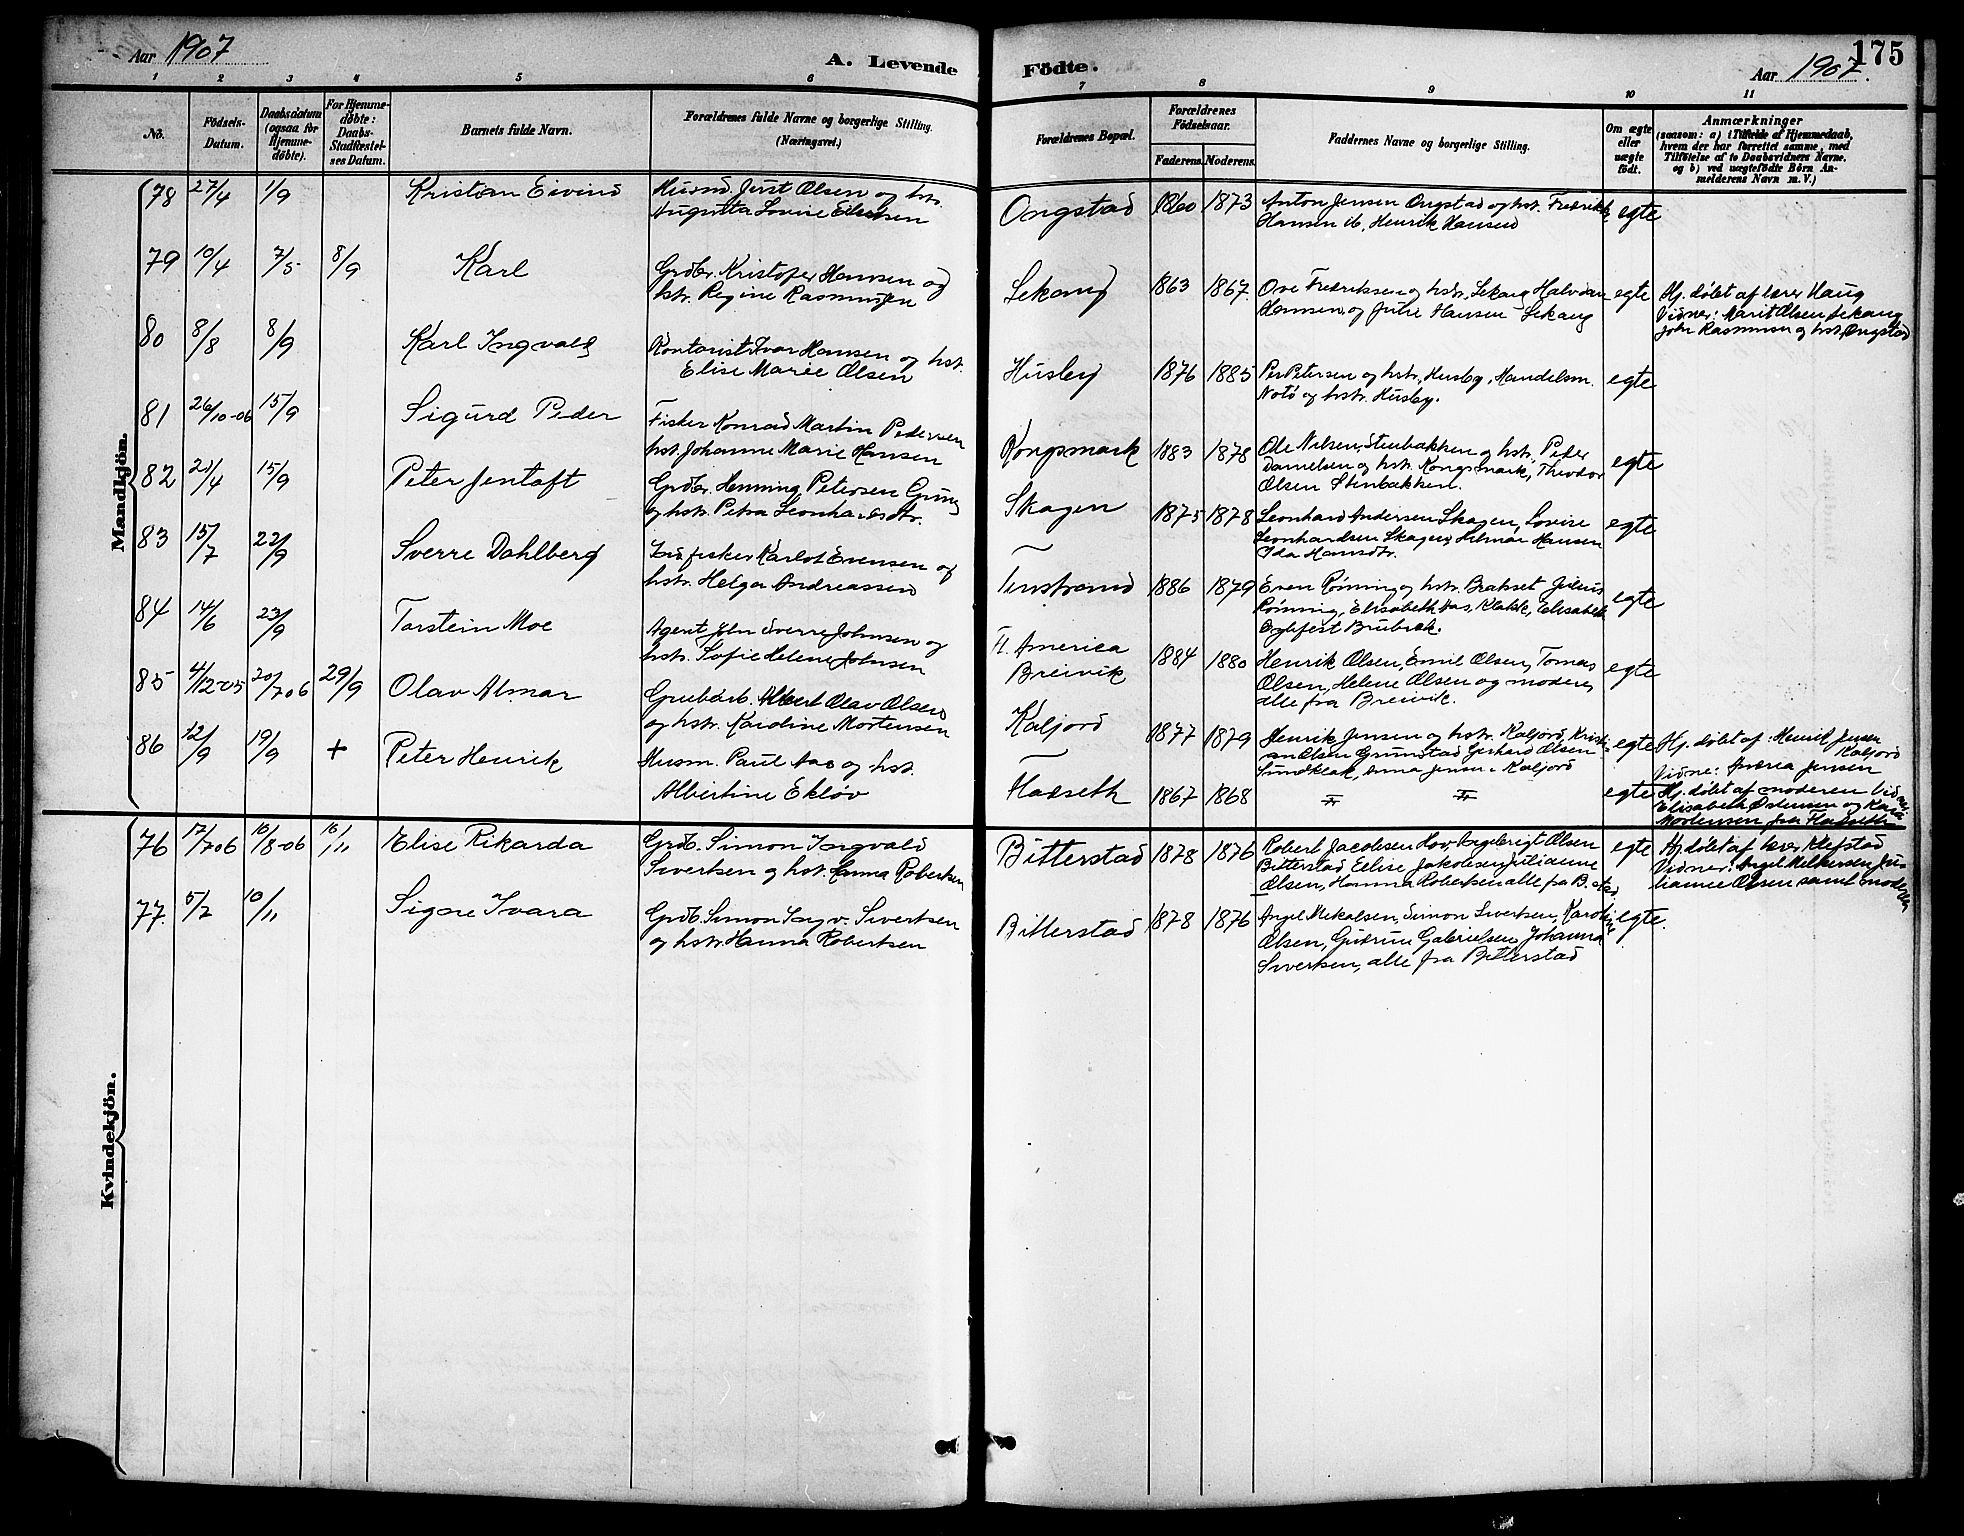 Aar 1907
A. Levende
Födte.
Aar 1907.
175
1 2 3 4 5 6 7 8 9 10 11
No.
Födsels-
Datum.
Daabsdatum
(ogsaa för
Hjemme-
döbte).
For Hjemme-
döbte:
Daabs-
Stadfæstel-
ses Datum.
Barnets fulde Navn.
Forældrenes fulde Navne og borgerlige Stilling.
(Næringsvei.)
Forældrenes Bopæl.
Forældrenes
Födselsaar.
Faderens. Moderens.
Faddernes Navne og borgerlige Stilling.
Om ægte
eller
uægte
födt.
Anmærkninger
(saasom: a) i Tilfælde af Hjemmedaab,
hvem der har forrettet samme, med
Tilföielse af to Daabsvidners Navne.
og b) ved uægtefödte Börn An-
melderens Navn m. V.)
Mandkjön.
78 27/4 1/9 Kristian Eivind
Husmd. Just Olsen og hst.
Augusta Lovise
Ongstad 1860 1873
Anton Jensen Ongstad og hst. Fredrikke
Hansen ib, Henrik Hansen
egte
79 10/4 7/5 8/9 Karl
Grdbr. Kristofer Hansen og
hst. Regine Rasmussen
Sekang 1863 1867
Ove Fredriksen og hst. Sekang Halvdan
Hansen og Julie Hansen Sekang
egte
Hj. döbt af lærer Haug
Vidner: Marit Olsen Sekang
John Rasmussen og hst. Ongstad
80 8/8 8/9 Karl Ingvald
Kontorist Ivar Hansen og hst.
Elise Marie Olsen
Husby 1876 1885
Per Petersen og hst. Husby, Handelsm.
Notö og hst. Husby.
egte
81 26/10-06 15/9 Sigurd Peder
Fisker Konrad Martin Pedersen
hst. Johanne Marie Hansen
Kongsmark 1883 1878
Ole Nilsen, Stenbakken og hst, Peder
Danielsen og hst. Kongsmark, Theodor
Olsen Stenbakken.
egte
82 21/4 15/9 Peter Jentoft
Grdbr. Henning Petersen
og hst. Petra Leonhardsdtr.
Skagen 1875 1878
Leonhard Andersen Skagen, Lovise
Leonhardsen Skagen, Hilmar Hansen
Ida Hansdtr.
egte
83 15/7 22/9 Sverre Dahlberg
fisker Karlot Evensen og
hst. Helga Andreassen
Tenstrand 1886 1879
Even Rønning og hst. Brakset Julius
Rønning, Elisabeth Aas, Klakk, Elisabeth
egte
84 14/6 23/9 Torstein Moe
Agent John Sverre Johnsen og
hst. Sofie Helene Johnsen
America
Breivik 1884 1880
Henrik Olsen, Emil Olsen, Tomas
Olsen, Helene Olsen og moderen,
alle fra Breivik.
egte
85 4/12-05 20/7 06 29/9 Olav Almar
Grubearb. Albert Olav Olsen
og hst. Karoline Mortensen
Kaljord 1877 1879
Henrik Jensen og hst. Kaljord, Kristi-
an Olsen Grunstad Gerhard Olsen
Sundklak, Anna Jensen Kaljord
egte
Hj. döbt af Henrik Jensen
Kaljord
Vidne: Andrea Jensen
86 12/9 19/9 + Peter Henrik
Husm. Paul Aas og hst.
Albertine Ekløv
Hadseth 1867 1868
egte
Hj. döbt af moderen Vidner
Elisabeth Østensen og Karia
Mortensen fra Hadseth
Kvindekjön.
76 17/7 06 16/8-06 10/11 Elise Rikarda
Grdb. Simon Ingvald
Sivertsen og hst. Hanna Robertsen
Bitterstad 1878 1876
Robert Jacobsen Hov, Ingebrigt Olsen
Bitterstad Elise Jakobsen Julianne
Olsen, Hanna Robertsen alle fra B.stad
egte
Hj döbt af lærer Klefstad
Vidner: Angel Melkersen Ju-
lianne Olsen samt moderen
77. 5/7 10/11 Signe Ivara
Grdb. Simon Ingv. Sivertsen
og hst. Hanna Robertsen
Bitterstad 1878 1876
Angel Mikalsen, Simon Sivertsen, Karoline
Olsen, Gudrun Gabrielsen, Johanna
Sivertsen, alle fra Bitterstad
egte.